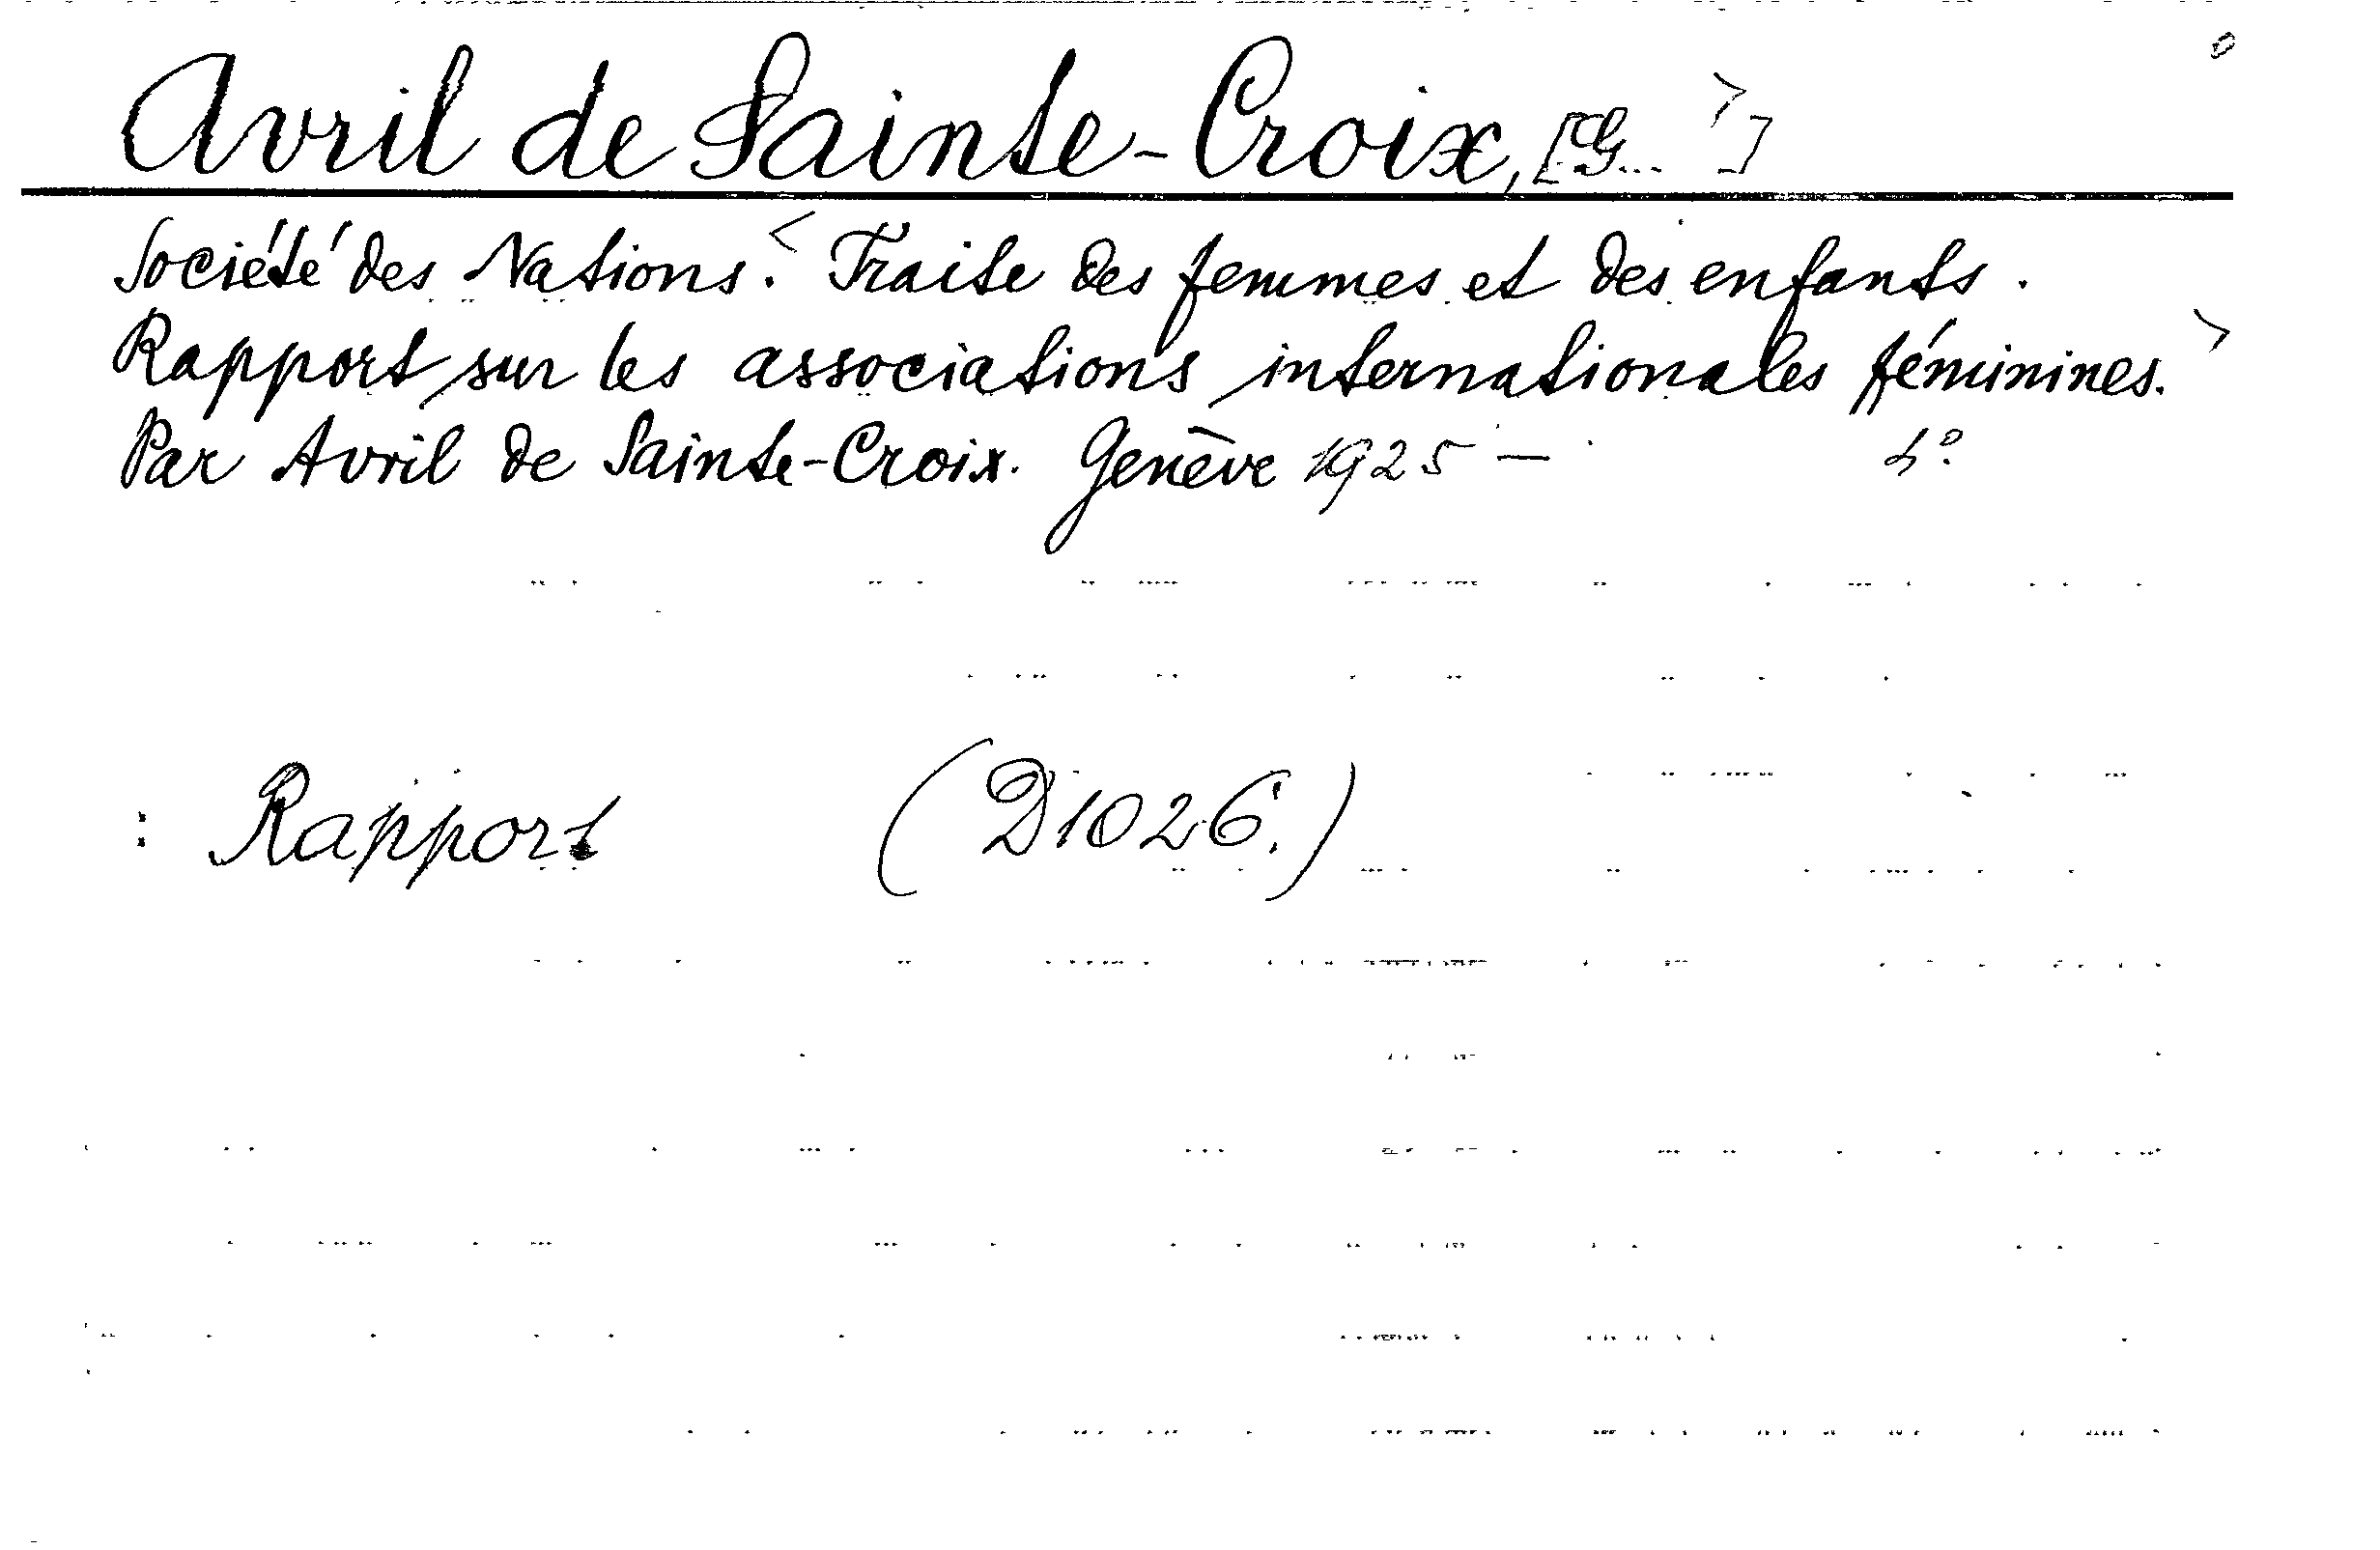 Avril de Sainte-Croix, [G... >]
Société des Nations. < Traite des femmes et des enfants.
Rapport sur les associations internationales féminines. >
Par Avril de Sainte-Croix. Genève 1925 — 4°.
: Rapport (D1026.)